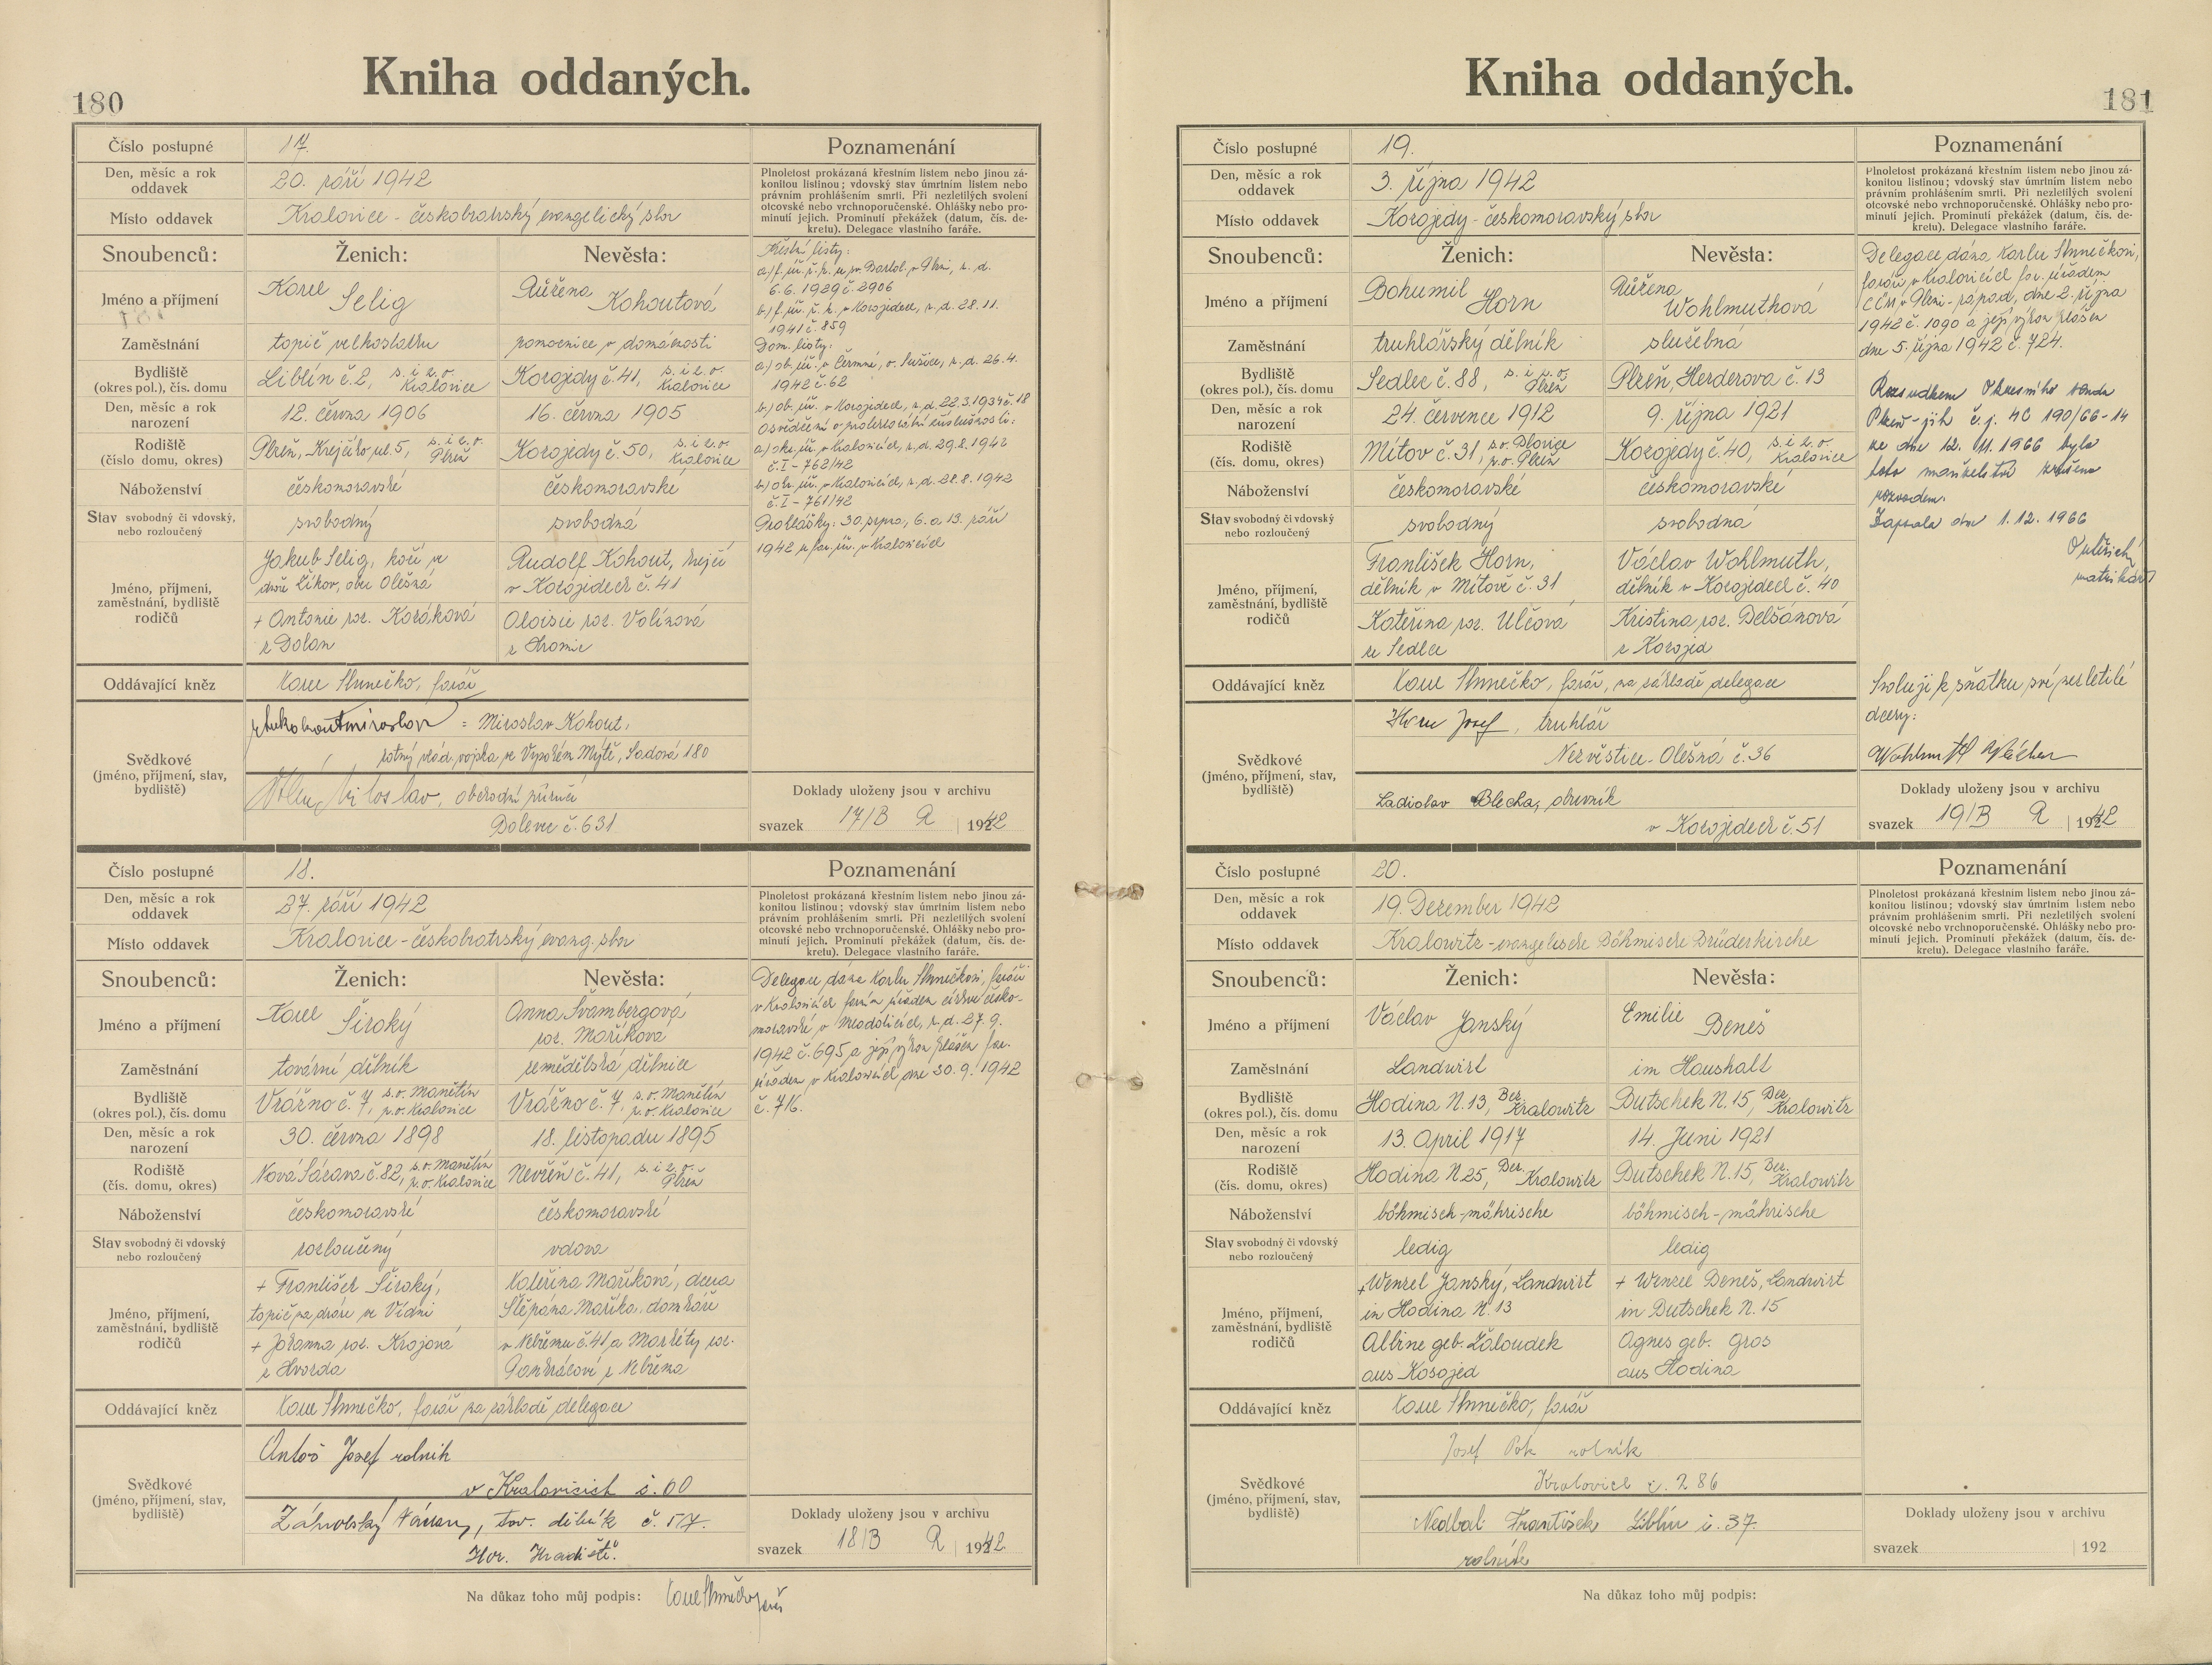 180
Kniha oddaných.
Číslo postupné
17.
Den, měsíc a rok
oddavek
20. září 1942
Místo oddavek
Kralovice - českobratrský evangelický sbor
Poznamenání
Plnoletost prokázaná křestním listem nebo jinou zá-
konitou listinou; vdovský stav úmrtním listem nebo
právním prohlášením smrti. Při nezletilých svolení
otcovské nebo vrchnoporučenské. Ohlášky nebo pro-
minutí jejich. Prominutí překážek (datum, čís. de-
kretu). Delegace vlastního faráře.
Snoubenců:
Ženich:
Nevěsta:
Jméno a příjmení
Karel Selig
Růžena Kohoutová
Zaměstnání
topič velkostatku
pomocnice v domácnosti
Bydliště
(okres pol.), čís. domu
Liblín č. 2, s. i p. o. Kralovice
Kozojedy č. 41, s. i p. o. Kralovice
Den, měsíc a rok
narození
12. června 1906
16. června 1905
Rodiště
(číslo domu, okres)
Plzeň, ul. 5, s. i p. o. Plzeň
Kozojedy č. 50, s. i p. o. Kralovice
Náboženství
českomoravské
českomoravské
Stav svobodný či vdovský,
nebo rozloučený
svobodný
svobodná
Jméno, příjmení,
zaměstnání, bydliště
rodičů
Jakub Selig, kočí ve
dvoře Číkov, obec Olešná
Rudolf Kohout, krejčí
v Kozojedech č. 41
+ Antonie roz. Koráková
z Dolan
Aloisie roz. Volínová
z Hromic
Oddávající kněz
Karel Slunečko, farář
Svědkové
(jméno, příjmení, stav,
bydliště)
= Miroslav Kohout,
rotný vlád. vojska ve Vysokém Mýtě, Sadová 180
Miloslav, obchodní příručí
Dolevec č. 631
Křestní listy:
a) f. úř. ř. k. u sv. Bartol. v Plzni, z. d.
6.6.1929 č. 2906
b) f. úř. ř. k. v Kozojedech, z. d. 28.11.
1941 č. 859
Dom. listy:
a) ob. úř. v Čermné, o. Sušice, z. d. 26.4.
1942 č. 62
b) ob. úř. v Kozojedech, z. d. 22.3.1934 č. 18
Osvědčení o protektorátní příslušnosti:
a) okr. úř. v Kralovicích, z. d. 29.8.1942
č. I - 762/42
b) okr. úř. v Kralovicích, z. d. 28.8.1942
č. I - 761/42
Prohlášky: 30. srpna, 6. a 13. září
1942 u far. úř. v Kralovicích
Doklady uloženy jsou v archivu
svazek 17/B R 1942
Číslo postupné
18.
Den, měsíc a rok
oddavek
27. září 1942
Místo oddavek
Kralovice - českobratrský evang. sbor
Poznamenání
Plnoletost prokázaná křestním listem nebo jinou zá-
konitou listinou; vdovský stav úmrtním listem nebo
právním prohlášením smrti. Při nezletilých svolení
otcovské nebo vrchnoporučenské. Ohlášky nebo pro-
minutí jejich. Prominutí překážek (datum, čís. de-
kretu). Delegace vlastního faráře.
Snoubenců:
Ženich:
Nevěsta:
Jméno a příjmení
Karel Široký
Anna Švambergová
roz. Maříková
Zaměstnání
tovární dělník
zemědělská dělnice
Bydliště
(okres pol.), čís. domu
Vrážno č. 7, s. o. Manětín
p. o. Kralovice
Vrážno č. 7, s. o. Manětín
p. o. Kralovice
Den, měsíc a rok
narození
30. června 1898
18. listopadu 1895
Rodiště
(čís. domu, okres)
Nová Sázava č. 82, s. o. Manětín
p. o. Kralovice
Nevřeň č. 41, s. i p. o. Plzeň
Náboženství
českomoravské
českomoravské
Stav svobodný či vdovský
nebo rozloučený
rozloučený
vdova
Jméno, příjmení,
zaměstnání, bydliště
rodičů
+ František Široký,
topič na dráze ve Vídni
Kateřina Maříková, dcera
Štěpána Maříka, domkáře
+ Johanna roz. Krajová
z Hvozda
v Nebřemu č. 41 a Markéty roz.
Pankrácové z Nebřema
Oddávající kněz
Karel Slunečko, farář na základě delegace
Svědkové
(jméno, příjmení, stav,
bydliště)
Antoš Josef rolník
v Kralovicích č. 60
Záhrobský Václav, tov. dělník č. 517.
Hor. Hradiště.
Delegace dána Karlu Slunečkovi, faráři
v Kralovicích farním úřadem církve česko-
moravské v Mladoticích, z. d. 27.9.
1942 č. 695 a její výkon hlášen far.
úřadem v Kralovicích dne 30.9.1942
č. 716.
Doklady uloženy jsou v archivu
svazek 18/B R 1942
Na důkaz toho můj podpis: Karel Slunečko farář
181
Kniha oddaných.
Číslo postupné
19.
Den, měsíc a rok
oddavek
3. října 1942
Místo oddavek
Kozojedy - českomoravský sbor
Poznamenání
Plnoletost prokázaná křestním listem nebo jinou zá-
konitou listinou; vdovský stav úmrtním listem nebo
právním prohlášením smrti. Při nezletilých svolení
otcovské nebo vrchnoporučenské. Ohlášky nebo pro-
minutí jejich. Prominutí překážek (datum, čís. de-
kretu). Delegace vlastního faráře.
Snoubenců:
Ženich:
Nevěsta:
Jméno a příjmení
Bohumil Horn
Růžena Wohlmuthová
Zaměstnání
truhlářský dělník
služebná
Bydliště
(okres pol.), čís. domu
Sedlec č. 88, s. i p. o. Plzeň
Plzeň, Herderova č. 13
Den, měsíc a rok
narození
24. července 1912
9. října 1921
Rodiště
(čís. domu, okres)
Mítov č. 31, s. o. Blovice
p. o. Plzeň
Kozojedy č. 40, s. i p. o. Kralovice
Náboženství
českomoravské
českomoravské
Stav svobodný či vdovský
nebo rozloučený
svobodný
svobodná
Jméno, příjmení,
zaměstnání, bydliště
rodičů
František Horn,
dělník v Mítově č. 31
Václav Wohlmuth,
dělník v Kozojedech č. 40
Kateřina roz. Ulčová
ze Sedlce
Kristina roz. Belšánová
z Kozojed
Oddávající kněz
Karel Slunečko, farář, na základě delegace
Svědkové
(jméno, příjmení, stav,
bydliště)
Horn Josef, truhlář
Nezvěstice - Olešná č. 36
Ladislav Blecha, obuvník
v Kozojedech č. 51
Delegace dána Karlu Slunečkovi,
faráři v Kralovicích far. úřadem
CČM v Plzni - západ, dne 2. října
1942 č. 1090 a její výkon hlášen
dne 5. října 1942 č. 724.
Rozsudkem Okresního soudu
Plzeň - jih č. j. 4C 190/66-14
ze dne 12. 11. 1966 bylo
toto manželství zrušeno
rozvodem.
Zapsala dne 1.12.1966
matrikář
Svoluji k sňatku své nezletilé
dcery:
Wohlmuth Václav
Doklady uloženy jsou v archivu
svazek 19/B R 1942
Číslo postupné
20.
Den, měsíc a rok
oddavek
19. Dezember 1942
Místo oddavek
Kralowitz - evangelische Böhmische Brüderkirche
Poznamenání
Plnoletost prokázaná křestním listem nebo jinou zá-
konitou listinou; vdovský stav úmrtním listem nebo
právním prohlášením smrti. Při nezletilých svolení
otcovské nebo vrchnoporučenské. Ohlášky nebo pro-
minutí jejich. Prominutí překážek (datum, čís. de-
kretu). Delegace vlastního faráře.
Snoubenců:
Ženich:
Nevěsta:
Jméno a příjmení
Václav Janský
Emilie Beneš
Zaměstnání
Landwirt
im Haushalt
Bydliště
(okres pol.), čís. domu
Hodina N. 13, Bez. Kralowitz
Butschek N. 15, Bez. Kralowitz
Den, měsíc a rok
narození
13. April 1917
14. Juni 1921
Rodiště
(čís. domu, okres)
Hodina N. 25, Bez. Kralowitz
Butschek N. 15, Bez. Kralowitz
Náboženství
böhmisch-mährische
böhmisch-mährische
Stav svobodný či vdovský
nebo rozloučený
ledig
ledig
Jméno, příjmení,
zaměstnání, bydliště
rodičů
+ Wenzel Janský, Landwirt
in Hodina N. 13
+ Wenzel Beneš, Landwirt
in Butschek N. 15
Albine geb. Žáloudek
aus Kosojed
Agnes geb. Gros
aus Hodina
Oddávající kněz
Karel Slunečko, farář
Svědkové
(jméno, příjmení, stav,
bydliště)
Josef Pok rolník
Kralovice č. 286
Nedbal František Liblín č. 37.
rolník
Doklady uloženy jsou v archivu
svazek 192
Na důkaz toho můj podpis: